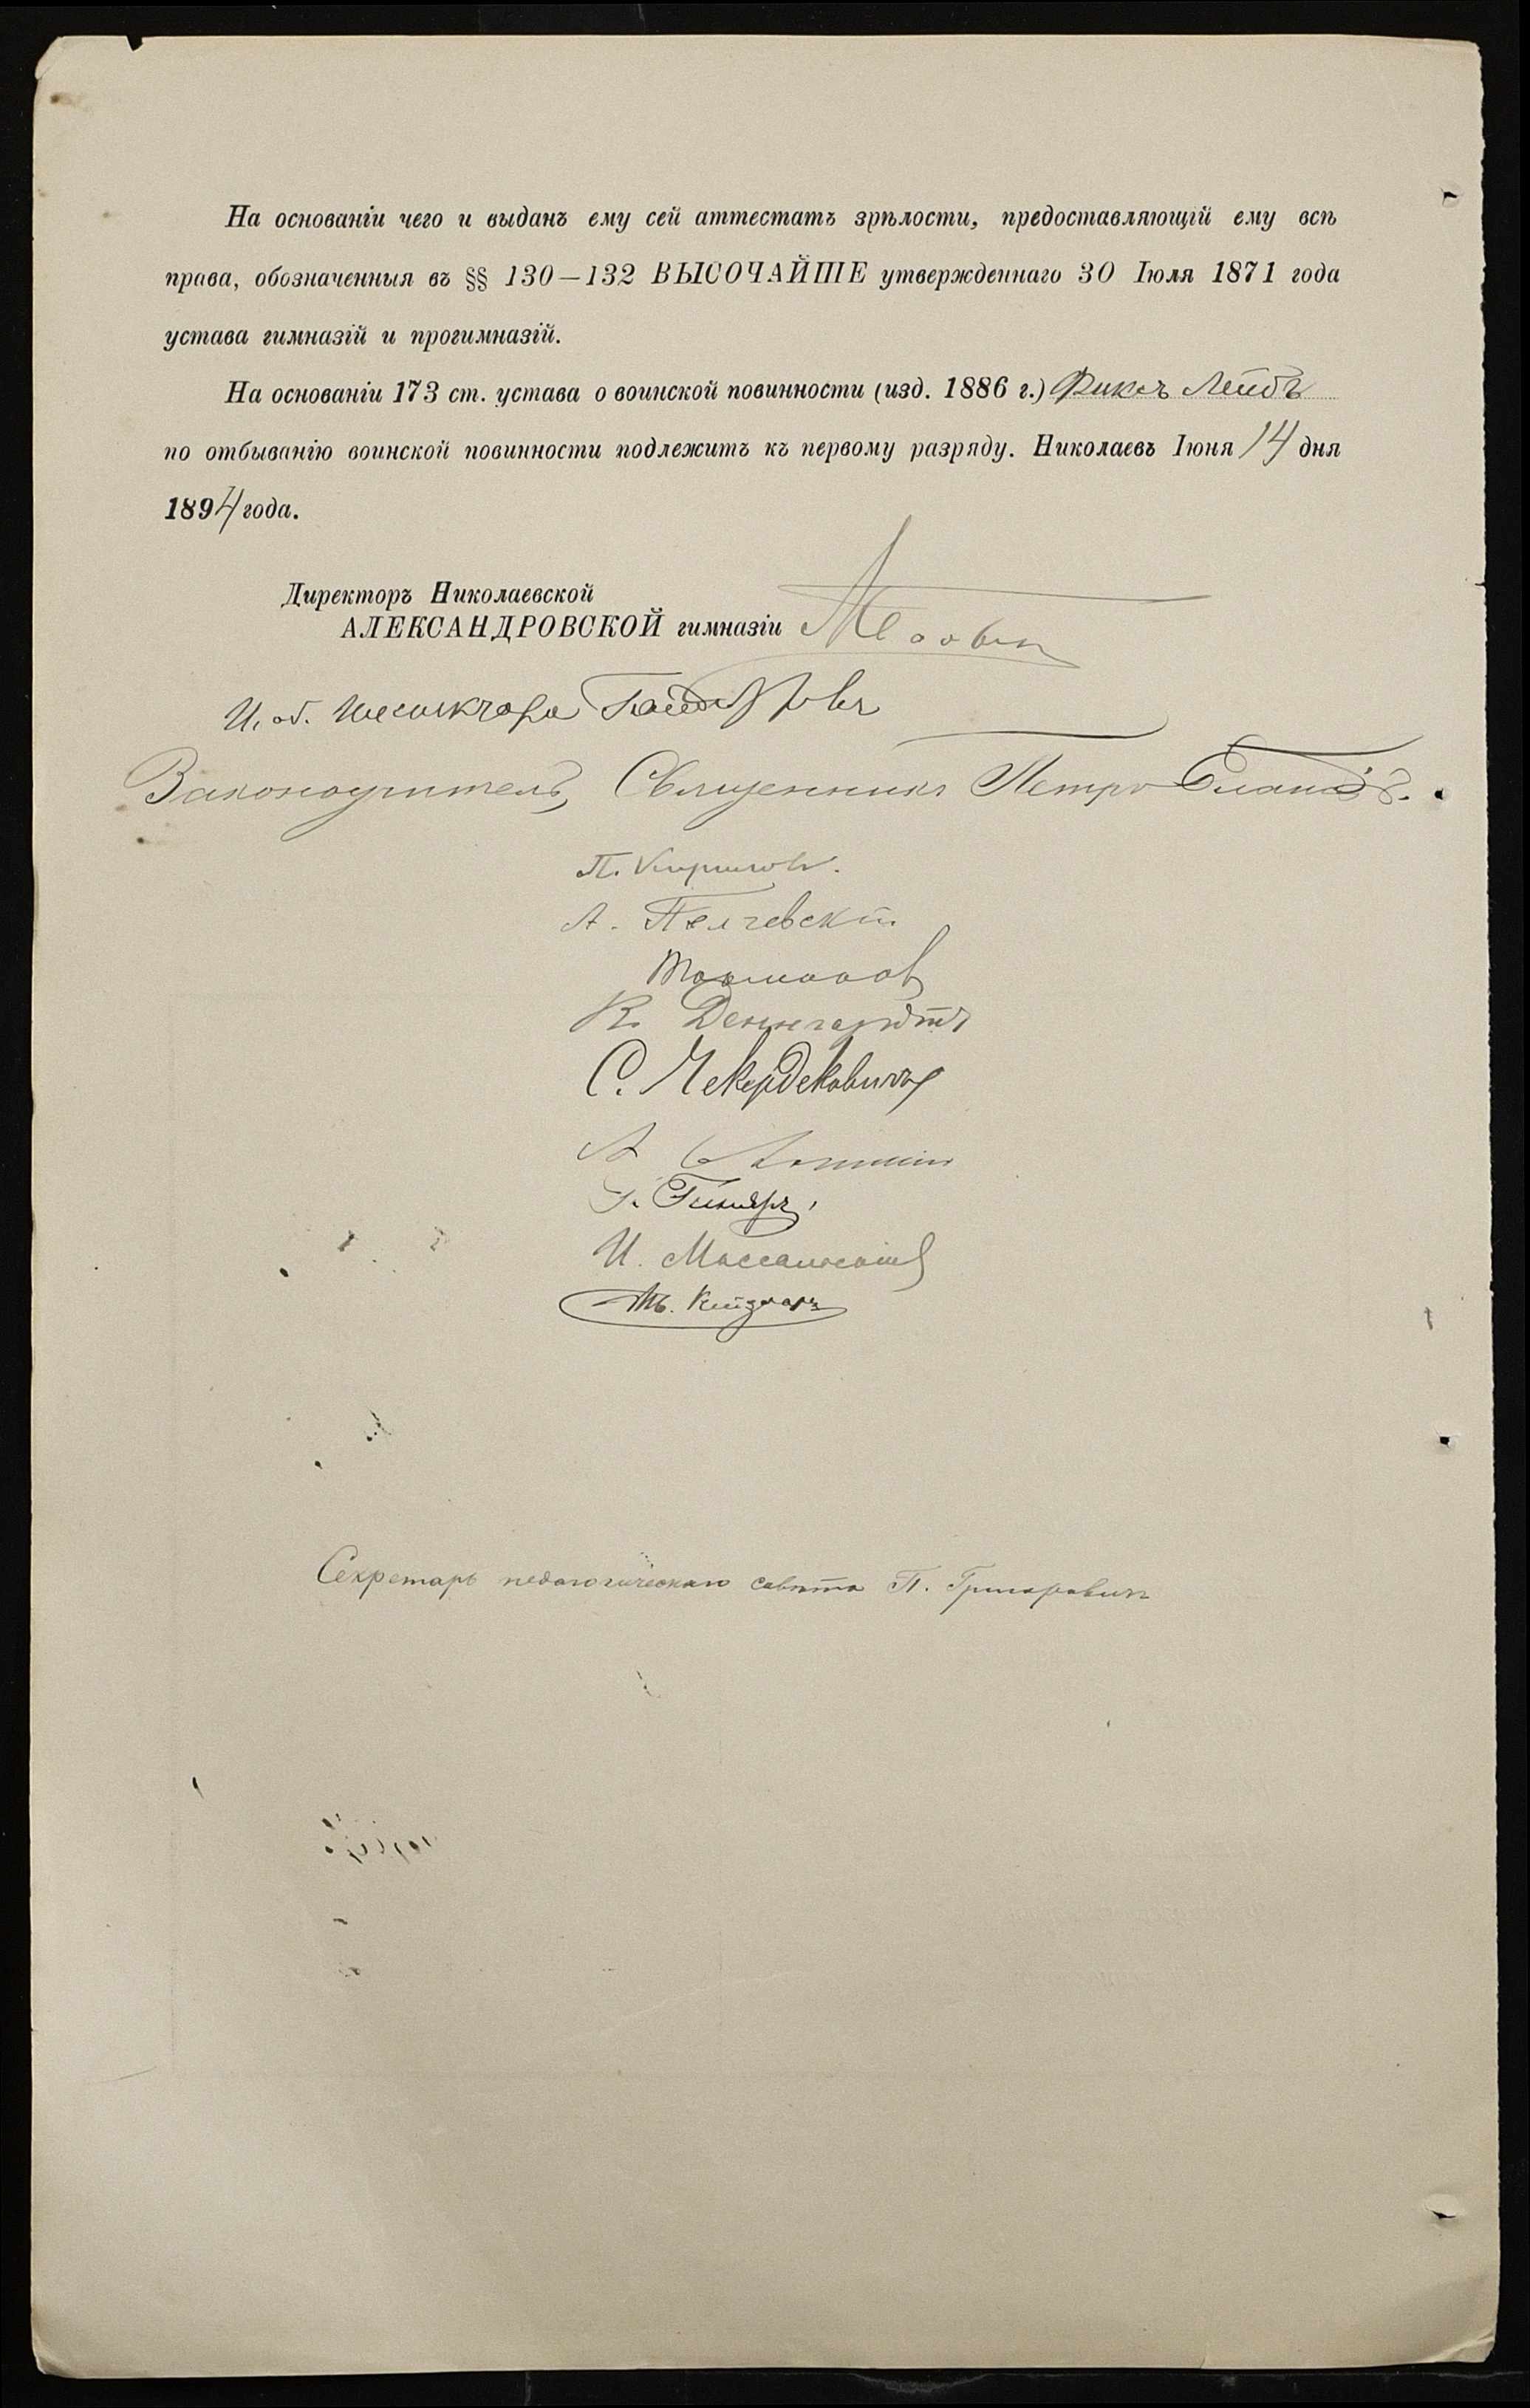 На основаніи чего и выданъ ему сей аттестатъ зрѣлости, предоставляющій ему всѣ
права, обозначенныя въ §§ 130—132 ВЫСОЧАЙШЕ утвержденнаго 30 Іюля 1871 года
устава гимназій и прогимназій.
На основаніи 173 ст. устава о воинской повинности (изд. 1886 г.) Фиксъ Лейбъ
по отбыванію воинской повинности подлежитъ къ первому разряду. Николаевъ Іюня 14 дня
1894 года.
Директоръ Николаевской
АЛЕКСАНДРОВСКОЙ гимназіи
И. об. Инспектора
Законоучитель, Священникъ Петръ
П. Кириловъ.
А.
К. Деннгардтъ
С. Чекердековичъ
А
И. Массальскій
Секретарь педагогическаго совѣта П. Григоровичъ